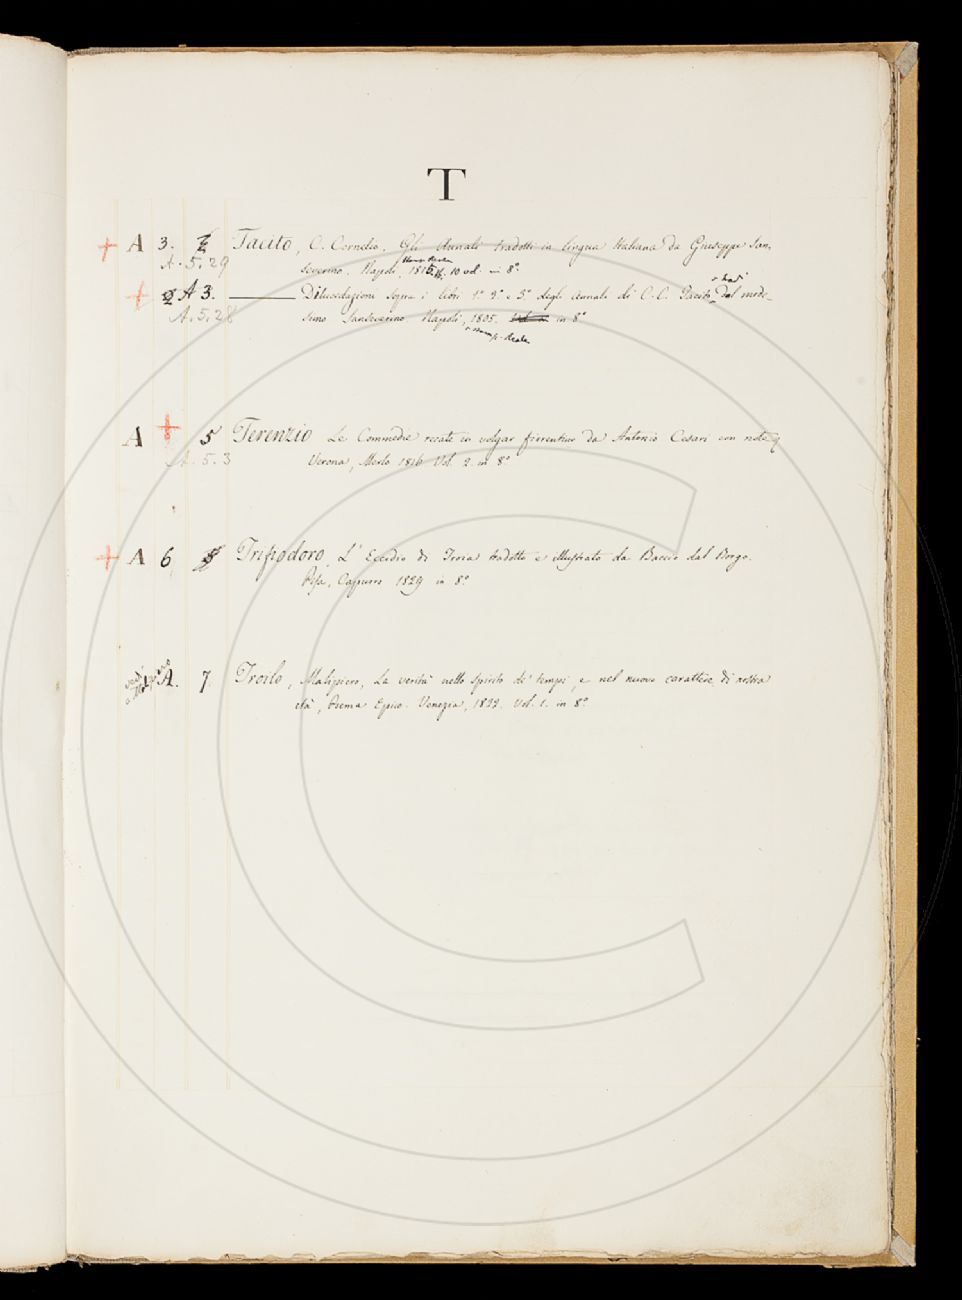 T
A 3. Tacito, C. Cornelio. Gli Annali tradotti in lingua Italiana da Giuseppe San-
A. 5. 29 severino. Napoli, 1815. 10 vol. in 8.°
A 3. Dilucidazioni sopra i libri 1.° 2.° e 5.° degli Annali di C. C. Tacito del mede-
A. 5. 28 simo Sanseverino. Napoli, 1805. in 8.°
Reale
A 5 Terenzio Le Commedie recate in volgar fiorentino da Antonio Cesari con note
A. 5. 3 Verona, Merlo 1816 Vol. 2. in 8.°
A 6 Trifiodoro, L'Eccidio di Troia tradotto e illustrato da Baccio dal Borgo.
Pisa, Capurro 1829 in 8.°
vedi Malipiero
A. 7 Troilo, Malipiero, La verità nello spirito de' tempi, e nel nuovo carattere di nostra
età, Poema Epico. Venezia, 1822. Vol. 1. in 8.°